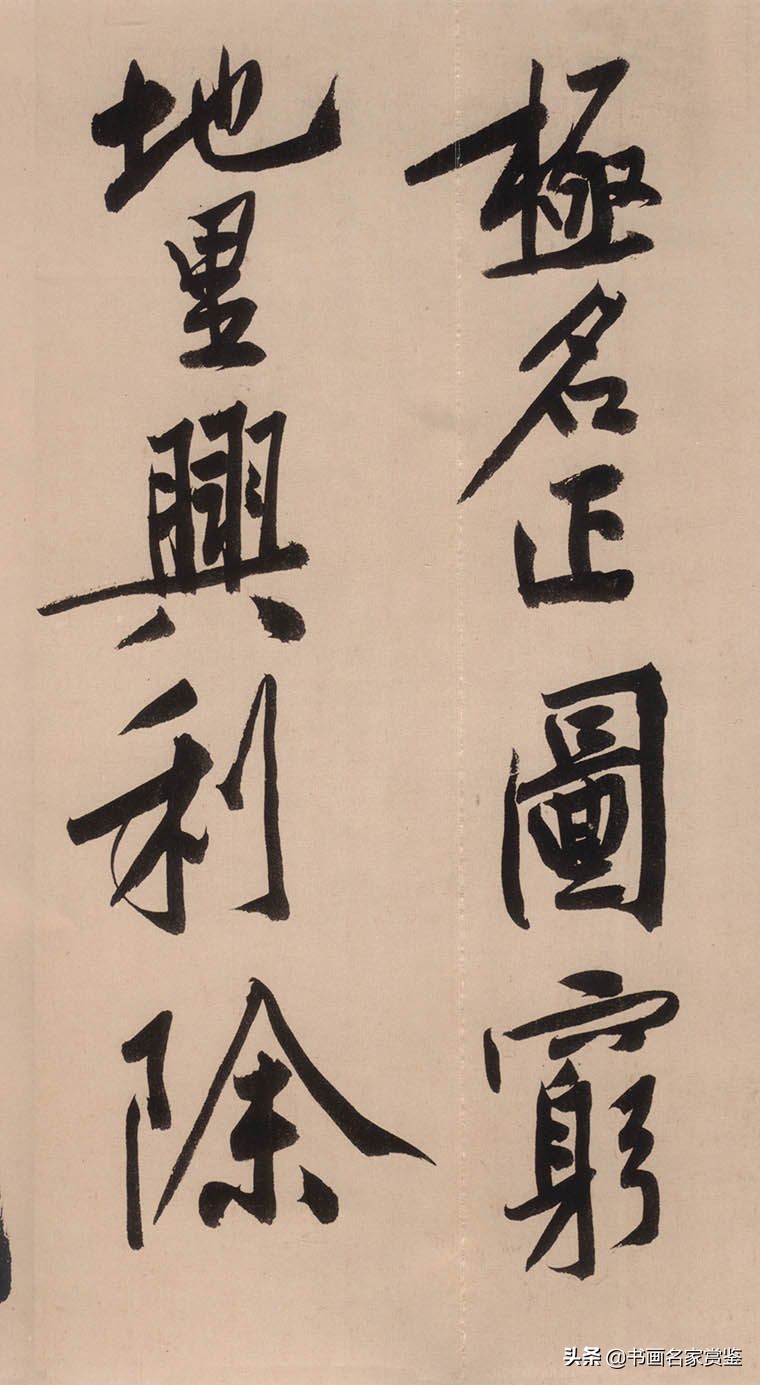 極名正圖窮
地里興利除
头条 @书画名家赏鉴